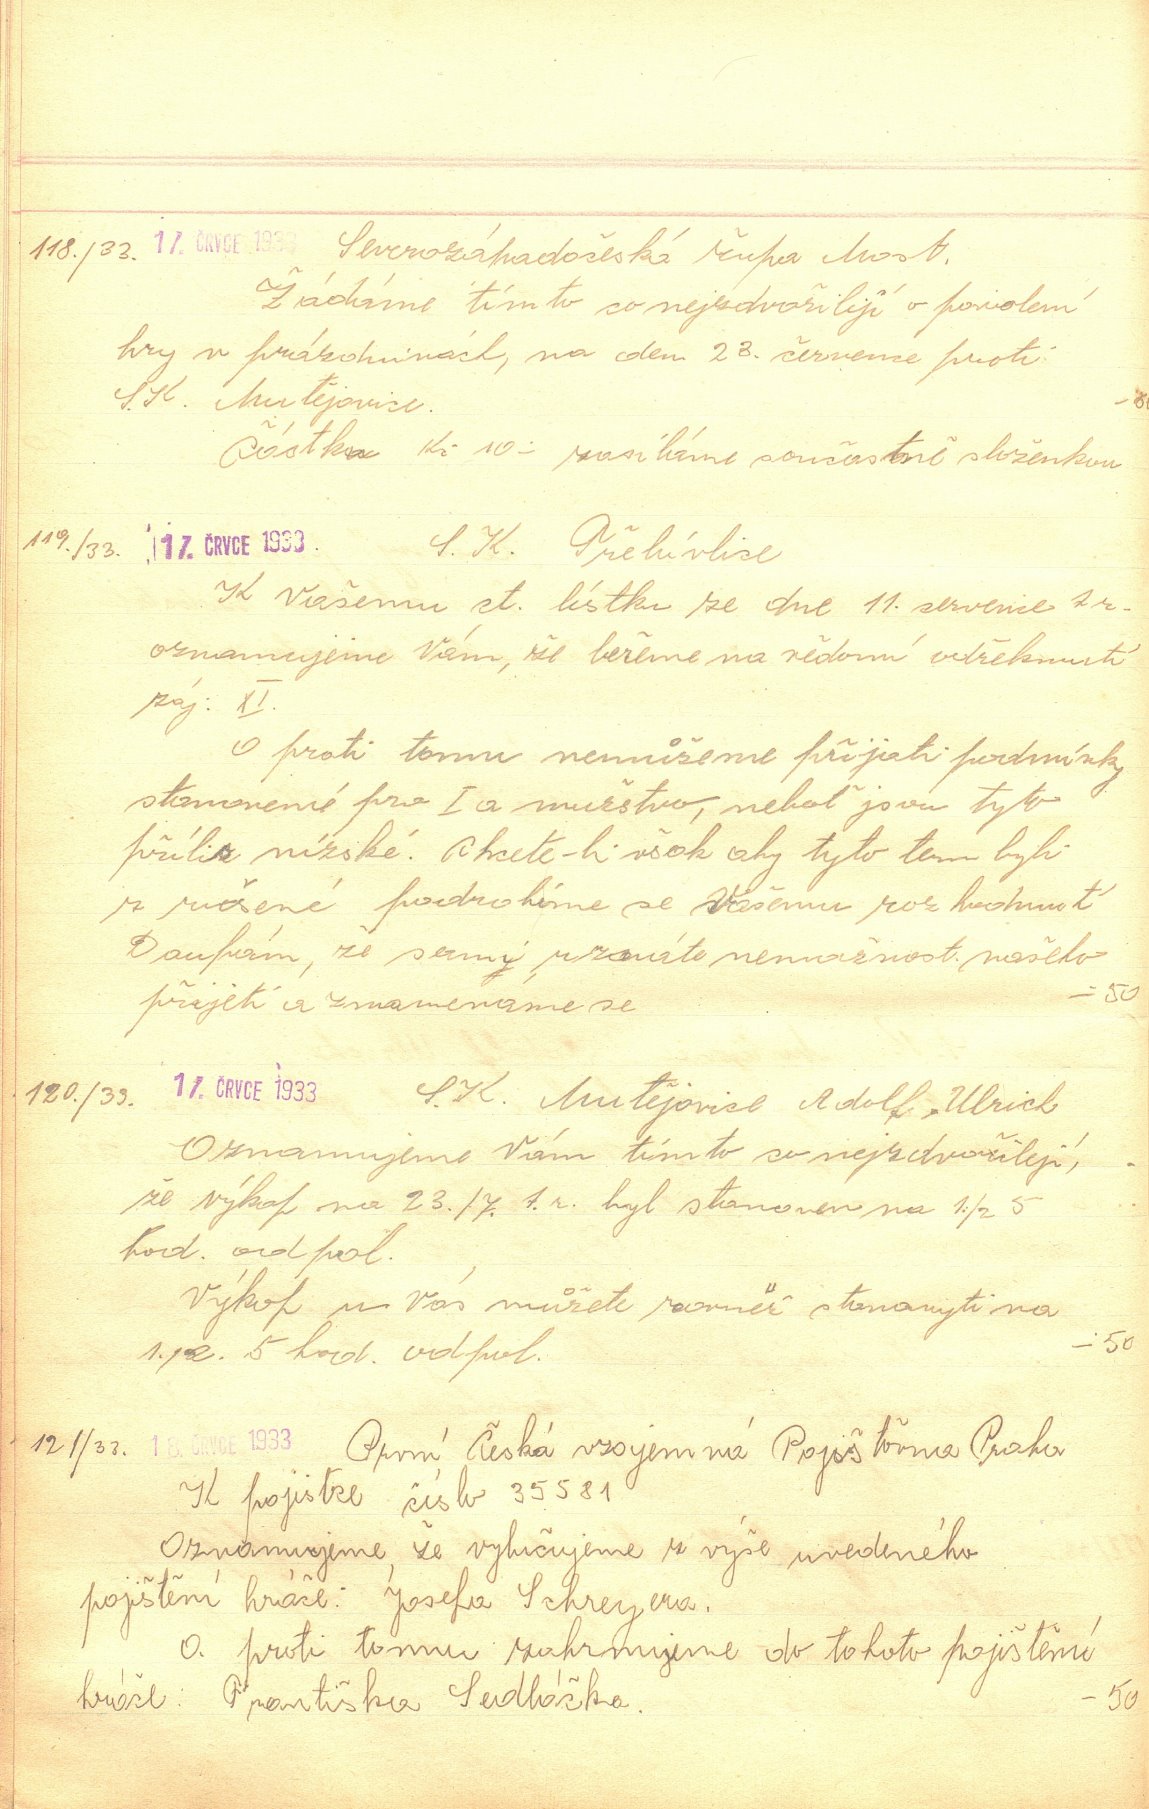 118./33. 17. ČRVCE 1933 Severozápadočeská župa Most.
Žádáme tímto co nejzdvořileji o povolení
hry v prázdninách, na den 23. července proti
S.K. Mutějovice.
Částku Kč 10- zasíláme současně složenkou
119./33. 17. ČRVCE 1933. S. K. Třelívlice
K Vašemu ct. lístku ze dne 11. července t r.
oznamujeme Vám, že beřeme na vědomí odřeknutí
záj: XI.
O proti tomu nemůžeme přijati podmínky
stanovené pro I a mužstvo, neboť jsou tyto
příliz nízské. Chcete-li však aby tyto tem byli
z rušené podrobíme se Vašemu rozhodnutí
Doufám, že samý uznáte nemožnost. našeho
přijetí a znamenáme se -50
120./33. 17. ČRVCE 1933 S.K. Mutějovice Adolf Ulrich
Oznamujeme Vám tímto co nejzdvořileji,
že výkop na 23./7. t.r. byl stanoven na 1./2 5
hod. odpol.
Výkop u Vás můžete rovněž stanovyti na
1./2. 5 hod. odpol. -50
121/33. 18. ČRVCE 1933 První Česká vzájemná Pojišťovna Praha
K pojistce číslo 35581
Oznamujeme, že vylučujeme z výše uvedeného
pojištění hráče: Josefa Schreyera.
O. proti tomu zahrnujeme do tohoto pojištění
hráče: Františka Sedláčka. -50